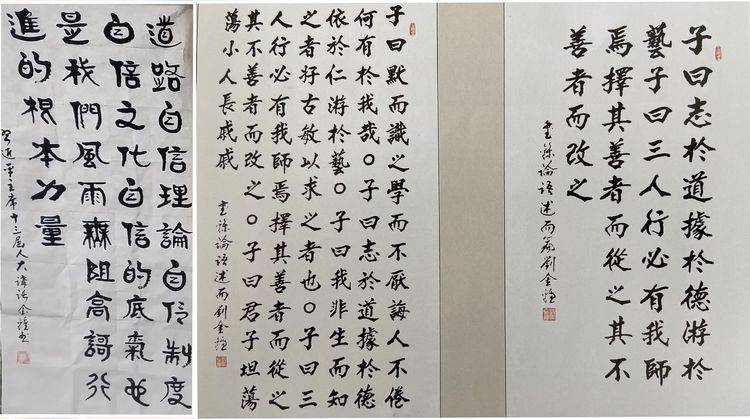 道路自信理論自信制度
自信文化自信的底氣也
是我們風雨無阻高謌行
進的根本力量
習近平主席十三屆人大講話金書
子曰默而識之學而不厭誨人不倦
何有於我哉○子曰志於道據於德
依於仁游於藝○子曰我非生而知
之者好古敏以求之者也○子曰三
人行必有我師焉擇其善者而從之
其不善者而改之○子曰君子坦蕩
蕩小人長戚戚
書錄論語述而劉金
子曰志於道據於德游於
藝子曰三人行必有我師
焉擇其善者而從之其不
善者而改之
書錄論語述而篇劉金